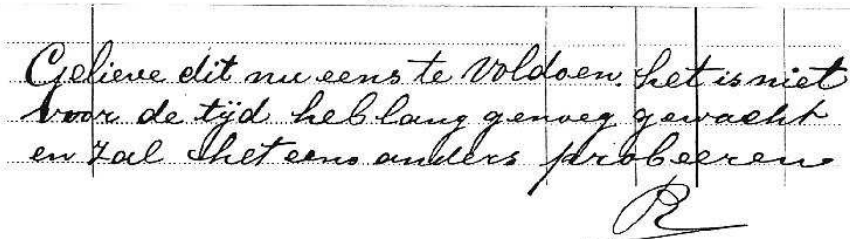 Gelieve dit nu eens te voldoen. het is niet
voor de tijd heb lang genoeg gewacht
en zal het eens anders probeeren
R